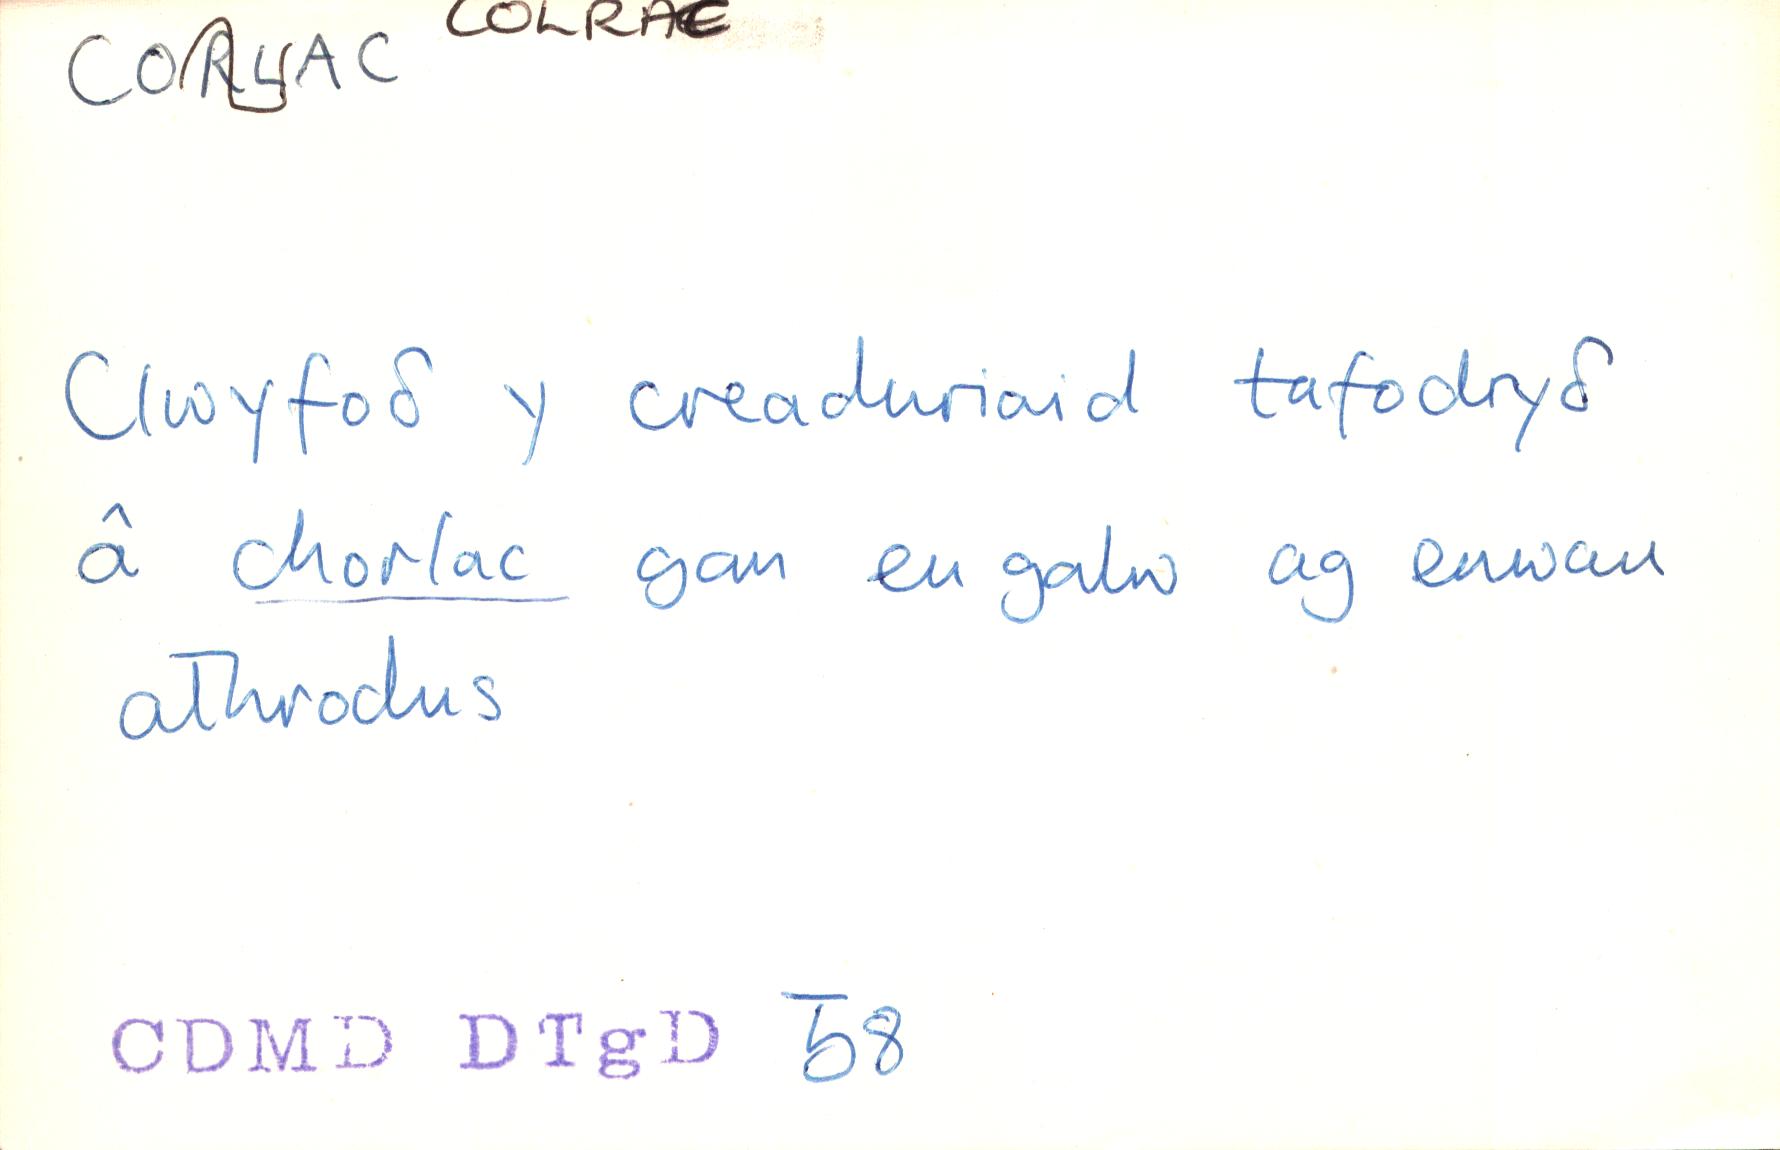 COLRAC
CORLAC
Clwyfoδ y creaduriaid tafodryδ
â chorlac gan eu galw ag enwau
athrodus
CDMD DTgD 58